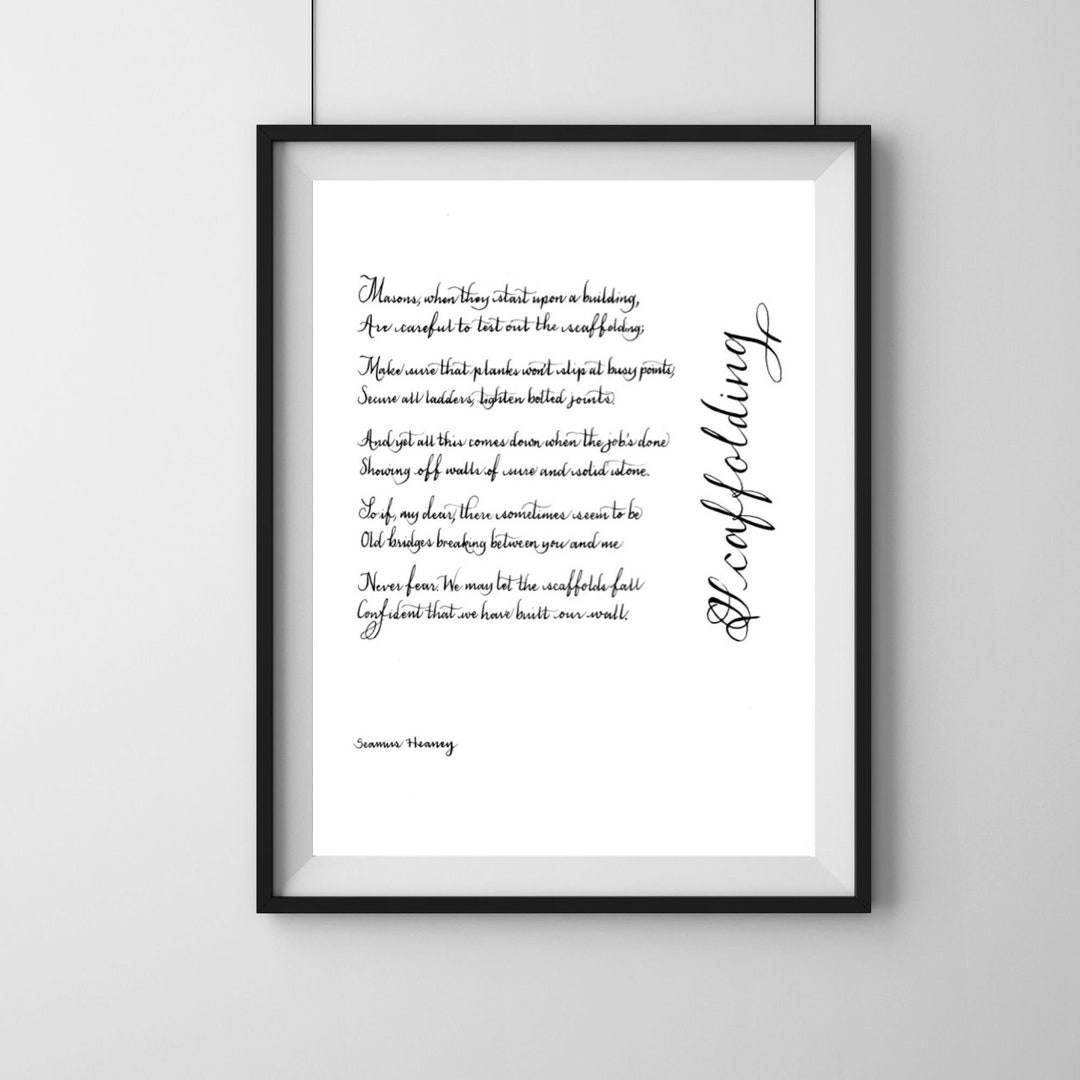 Masons, when they start upon a building,
Are careful to test out the scaffolding;
Make sure that planks won't slip at busy points,
Secure all ladders, tighten bolted joints.
And yet all this comes down when the job's done
Showing off walls of sure and solid stone.
So if, my dear, there sometimes seem to be
Old bridges breaking between you and me
Never fear. We may let the scaffolds fall
Confident that we have built our wall.
Scaffolding
Seamus Heaney